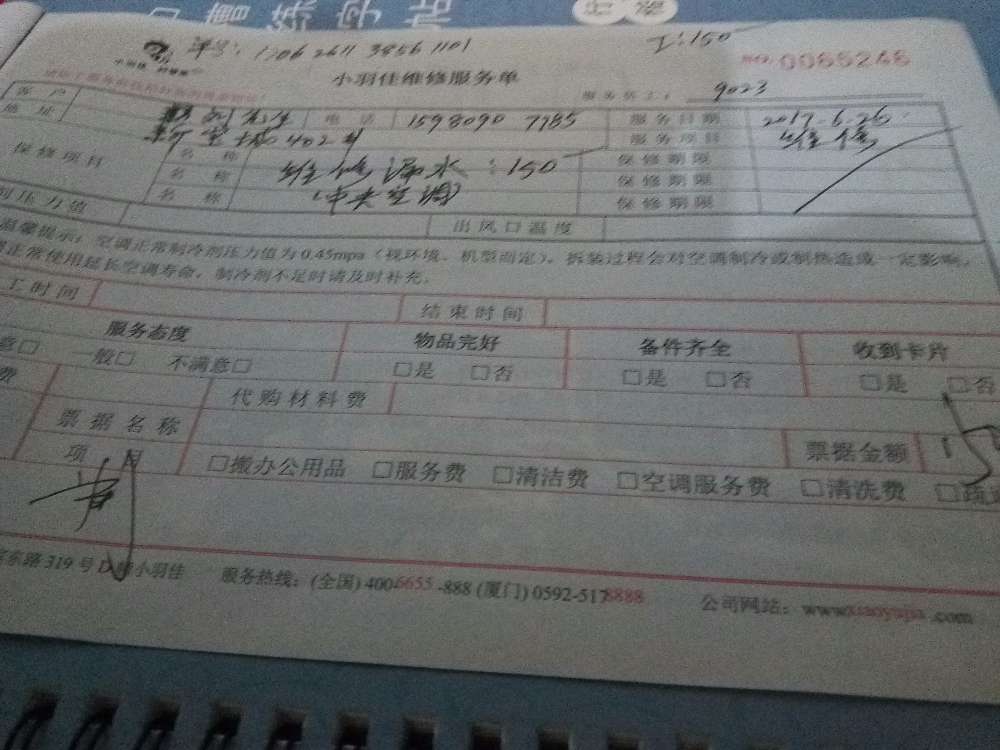 练字帖
单号：1706 2611 3856 1101 工:150
小羽佳 No: 0065246
小羽佳维修服务单
服务员工： 9023
客户 先生 电话 1598090 7785 服务日期 2017.6.26
地址 402 服务项目 维修
保修项目 名称 维修漏水：150 保修期限
名称 （中央空调） 保修期限
名称 保修期限
剂压力值 出风口温度
温馨提示：空调正常制冷剂压力值为0.45mpa（视环境、机型而定），拆装过程会对空调制冷或制热造成一定影响，
正常使用延长空调寿命，制冷剂不足时请及时补充.
工时间 结束时间
服务态度 物品完好 备件齐全 收到卡片
意□ 一般□ 不满意□ □是 □否 □是 □否 □是 □否
费 代购材料费
票据名称 票据金额 15
项目 □搬办公用品 □服务费 □清洁费 □空调服务费 □清洗费 □疏通
东路319号D 小羽佳 服务热线：(全国) 400-6655-888 (厦门) 0592-5178888 公司网站：www.xiaoyujia.com